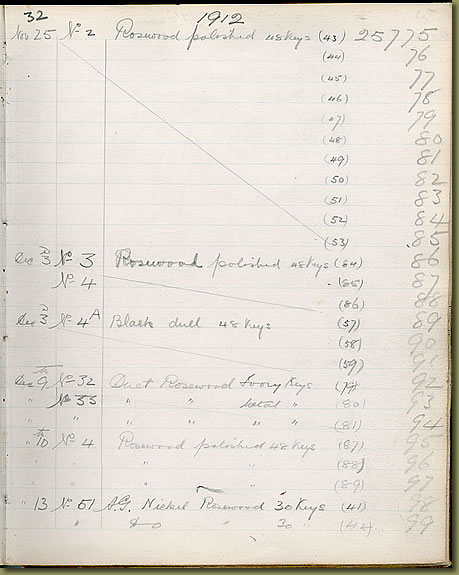 32 1912
Nov 25 No 2 Rosewood polished 48 Keys (43) 25775
(44) 76
(45) 77
(46) 78
(47) 79
(48) 80
(49) 81
(50) 82
(51) 83
(52) 84
(53) 85
Dec 3 No 3 Rosewood polished 48 Keys (64) 86
No 4 (85) 87
(86) 88
Dec 3 No 4A Black dull 48 Keys (57) 89
(58) 90
(59) 91
Dec 9 No 32 Duet Rosewood Ivory Keys (79) 92
" No 33 " " " (80) 93
" " " " " " (81) 94
" 10 No 4 Rosewood polished 48 Keys (87) 95
" " " " (88) 96
" " " " (89) 97
" 13 No 51 A.G. Nickel Rosewood 30 Keys (41) 98
" do " 30 " (42) 99